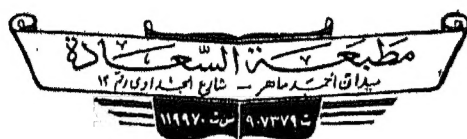 مطبعة السعادة
ميدان احمد ماهر – شارع الجداوى رقم ١٢
ت ٩٠٧٣٧٩ س.ت ١١٩٩٧٠